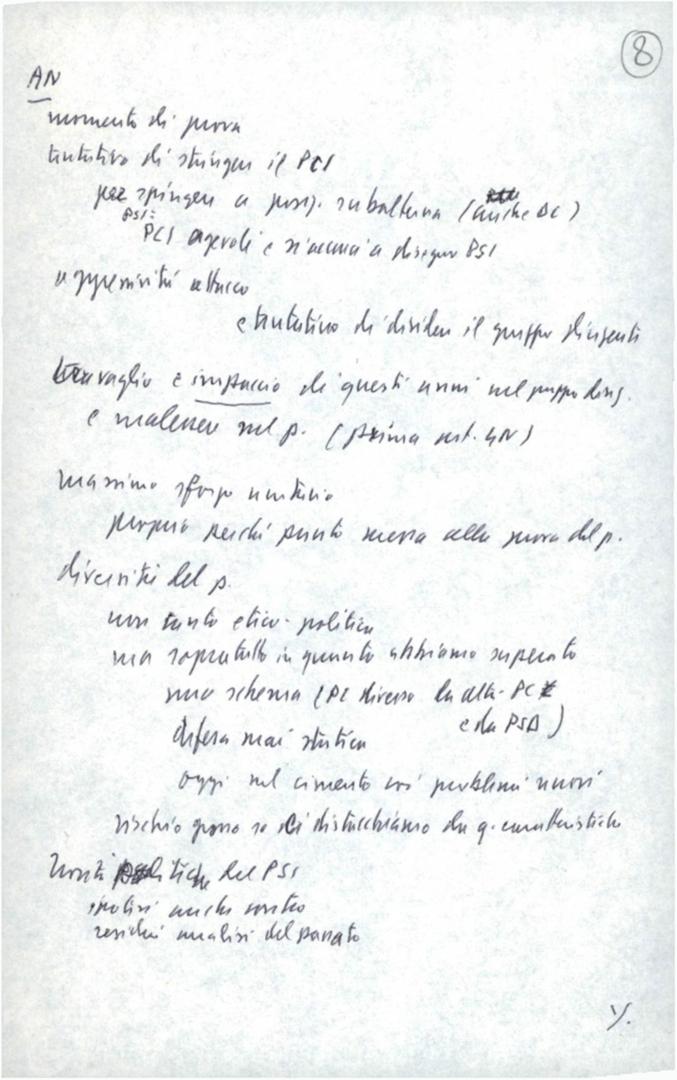 8
AN
momento di prova
tentativo di stringere il PCI
per spingere a posiz. subalterna (anche DC)
PSI:
PCI agevoli e s'accoda a disegno PSI
aggressività attacco
e tentativo di dividere il gruppo dirigente
travaglio e impaccio di questi anni nel gruppo dirig.
e malessere nel p. (prima sett. 4N)
massimo sforzo unitario
proprio perché punto messa alla prova del p.
diversità del p.
non tanto etico-politica
ma sopratutto in quanto abbiamo superato
uno schema (PC diverso da altri PC
e da PSD)
difesa mai statica
oggi nel cimento coi problemi nuovi
rischio grosso se ci distacchiamo da q. caratteristiche
Novità politiche del PSI
anche nostro
residui analisi del passato